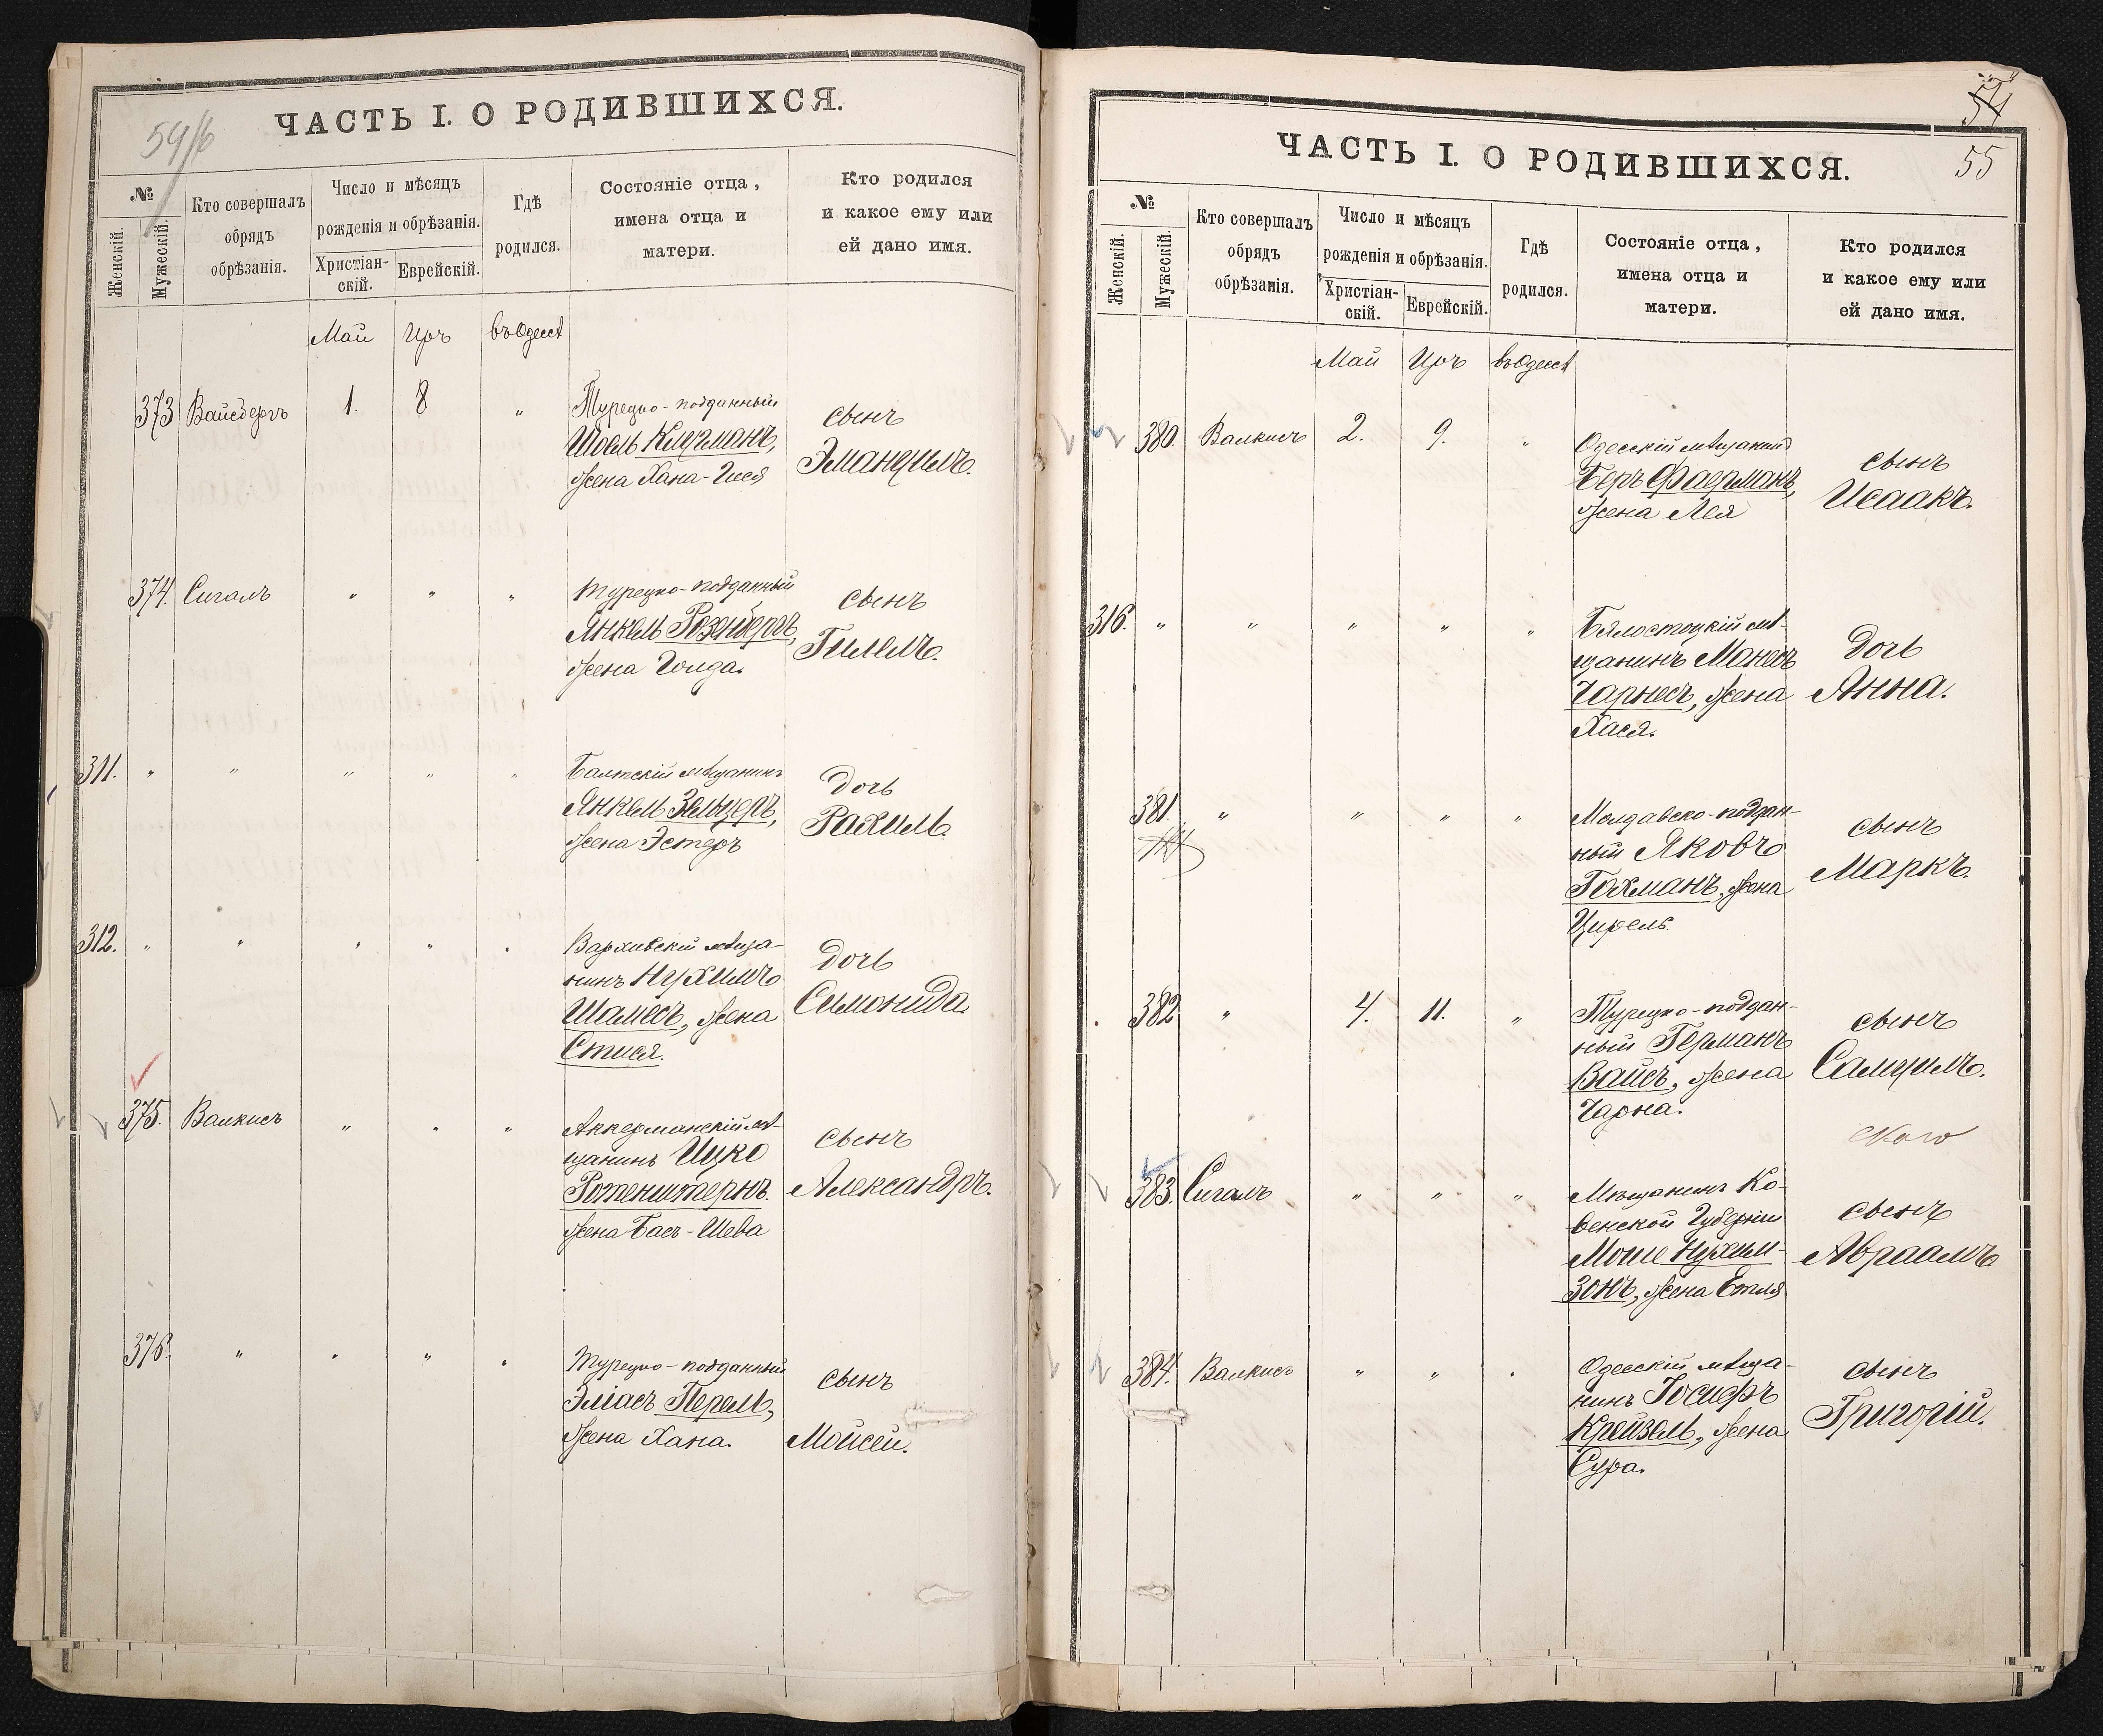 59/б
ЧАСТЬ I. О РОДИВШИХСЯ.
№
Женскій.
Мужескій.
Кто совершалъ
обрядъ
обрѣзанія.
Число и мѣсяцъ
рожденія и обрѣзанія.
Христіан-
скій.
Еврейскій.
Гдѣ
родился.
Состояніе отца,
имена отца и
матери.
Кто родился
и какое ему или
ей дано имя.
Май Иръ въ Одессѣ
373 Вайсбергъ 1. 8 "
Турецко-подданный
Шоель Клугманъ,
жена Хана-Гися
сынъ
Эмануилъ.
374. Сигалъ " " "
Турецко-подданный
Янкель Розенбергъ,
жена Голда.
сынъ
Гилель.
311. " " " " "
Балтскій мѣщанинъ
Янкель Зельцеръ,
жена Эстеръ
дочь
Рахиль.
312. " " " " "
мѣща-
нинъ Нухимъ
Шамесъ, жена
Стися.
дочь
Симонида.
375. Валкисъ " " "
Аккерманскій мѣ-
щанинъ Ицко
Ротенштернъ.
жена Бась-Шева
сынъ
Александръ.
376. " " " "
Турецко-подданный
Эліасъ Перель,
жена Хана.
сынъ
Мойсей.
54
55
ЧАСТЬ I. О РОДИВШИХСЯ.
№
Женскій.
Мужескій.
Кто совершалъ
обрядъ
обрѣзанія.
Число и мѣсяцъ
рожденія и обрѣзанія.
Христіан-
скій.
Еврейскій.
Гдѣ
родился.
Состояніе отца,
имена отца и
матери.
Кто родился
и какое ему или
ей дано имя.
Май Иръ въ Одессѣ
380. Валкисъ 2. 9. "
Одесскій мѣщанинъ
Беръ Фаерманъ,
жена Лея
сынъ
Исаакъ.
316. " " " " "
Бѣлостоцкій мѣ-
щанинъ Манесъ
Чарнесъ, жена
Хася.
дочь
Анна.
381. " " " "
Молдавско-поддан-
ный Яковъ
Гохманъ, жена
Цирель.
сынъ
Маркъ.
382 " 4. 11. "
Турецко-поддан-
ный Германъ
Вайсъ, жена
Чарна.
сынъ
Самуилъ.
383. Сигалъ " " "
Мѣщанинъ Ко-
венской Губерніи
Моше Нухим-
зонъ, жена Етля
сынъ
Авраамъ
384. Валкисъ " " "
Одесскій мѣща-
нинъ Іосифъ
Крейзель, жена
Сура.
сынъ
Григорій.